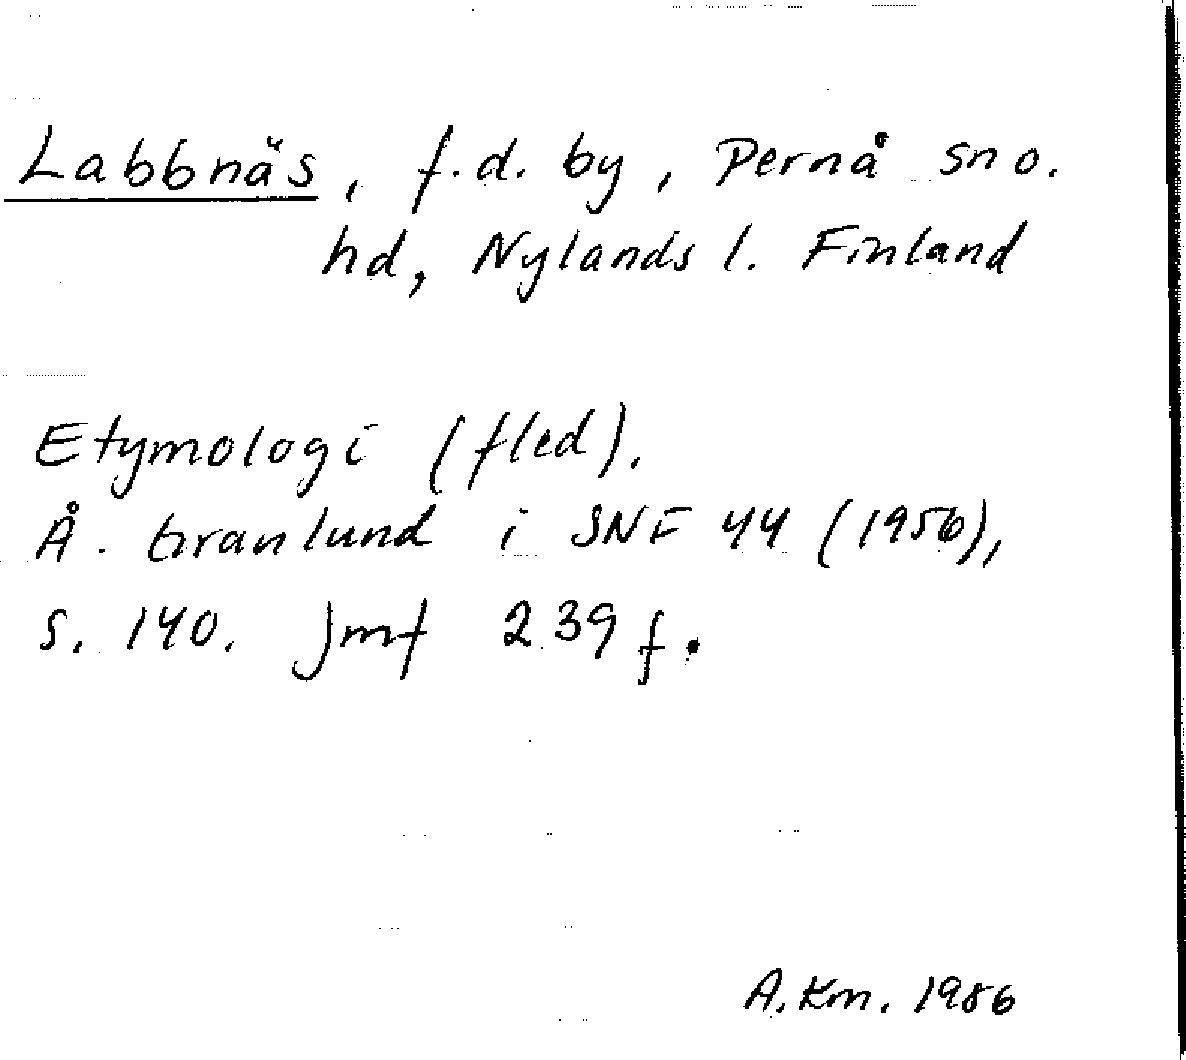 Labbnäs, f.d. by, Pernå sn o.
hd, Nylands l. Finland
Etymologi (fled).
Å. Granlund i SNF 44 (1956),
s. 140. Jmf 239 f.
A. Km. 1986